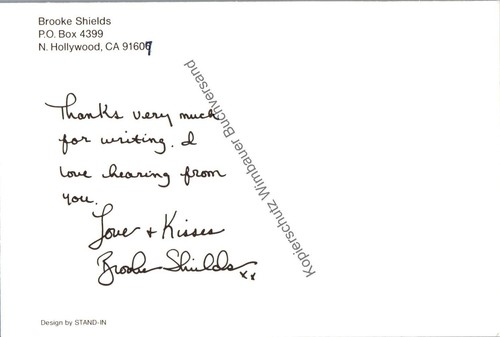 Brooke Shields
P.O. Box 4399
N. Hollywood, CA 91607
Thanks very much
for writing. I
love hearing from
you.
Love + Kisses
Brooke Shields xx
Kopierschutz Wimbauer Buchversand
Design by STAND-IN